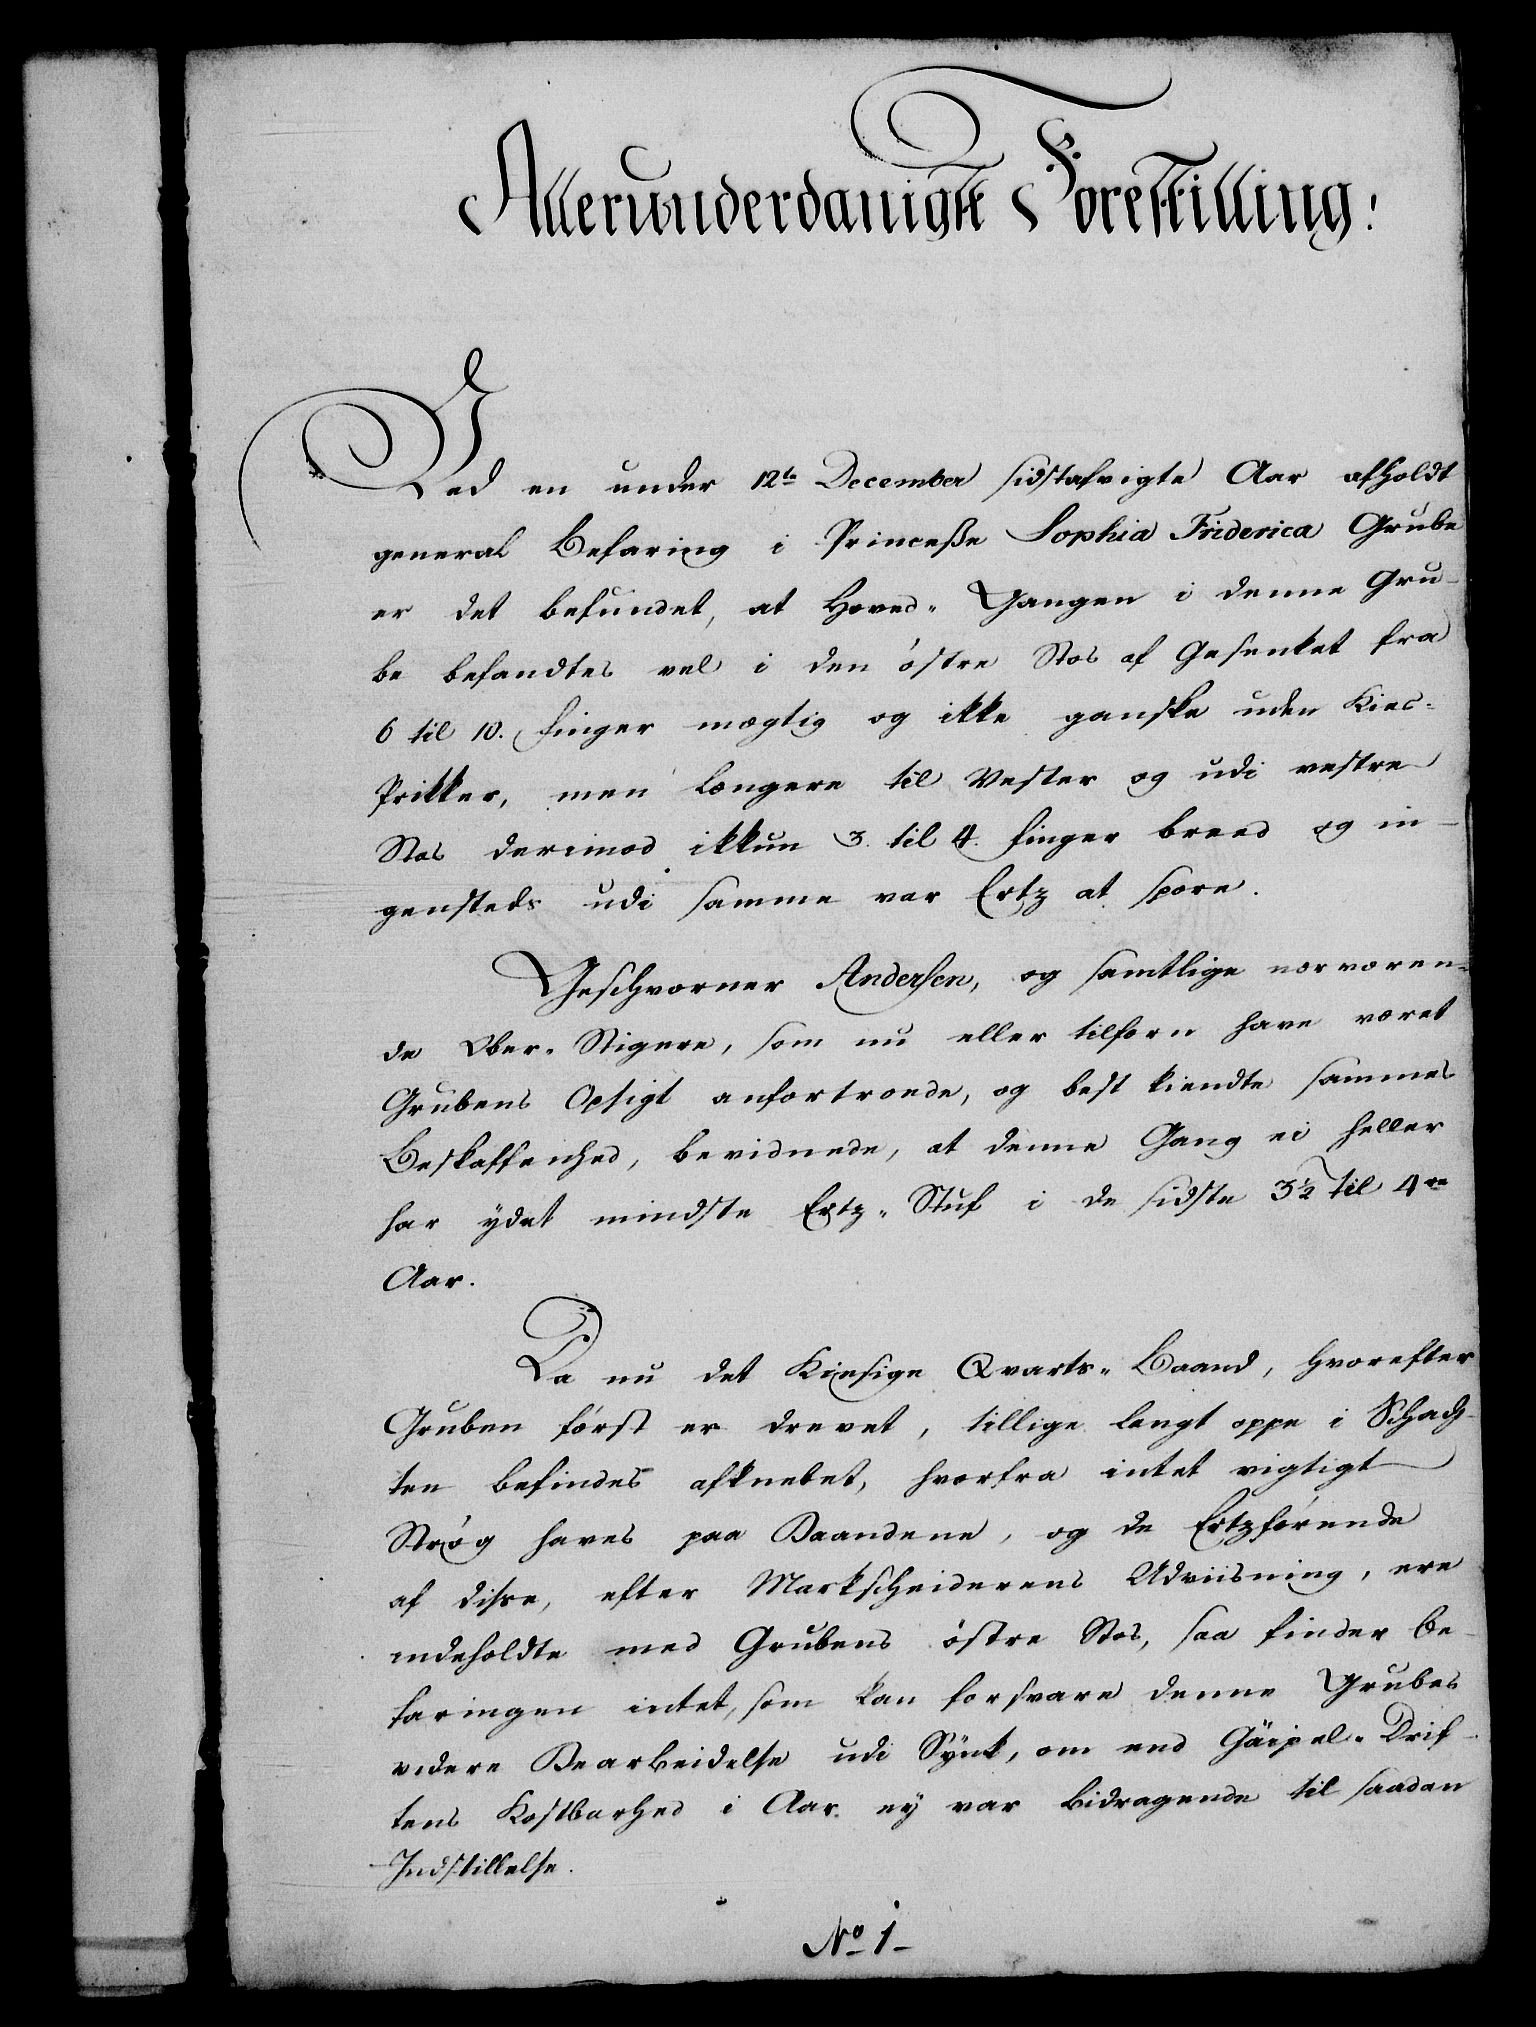 Allerunderdanigst Forestilling!
Ved en under 12te December sidstafvigte Aar afholdt
general Befaring i Princeße Sophia Friderica Grube
er det befundet, at Hoved-Gangen i denne Gru-
be befandtes vel i den østre Stos af Gesenket fra
6 til 10. finger mægtig og ikke ganske uden Kies-
Prikker, men længere til Vester og udi vestre
Stos derimod ikkun 3. til 4. finger breed og in-
gensteds udi samme var Ertz at spore.
Geschworner Andersen, og samtlige nærværen-
de Ober-Stigere, som nu eller tilforn have været
Grubens Opsigt anfortroede, og best kiendte sammes
Beskaffenhed, bevidnede, at denne Gang ei heller
har ydet mindste Ertz-Stuf i de sidste 3½ til 4re
Aar.
Da nu det Kiesige Qvarts-Baand, hvorefter
Gruben først er drevet, tillige langt oppe i Schach-
ten befindes afknebet, hvorfra intet vigtigt
Strøg haves paa Baandene, og de Ertzførende
af disse, efter Markscheiderens Udviisning, ere
indeholdte med Grubens østre Stos, saa finder Be-
faringen intet, som kan forsvare denne Grubes
videre Bearbeidelse udi Synk, om end Gäipel-Drif-
tens Kostbarhed i Aar ey var bidragende til saadan
Indstillelse.
No 1-